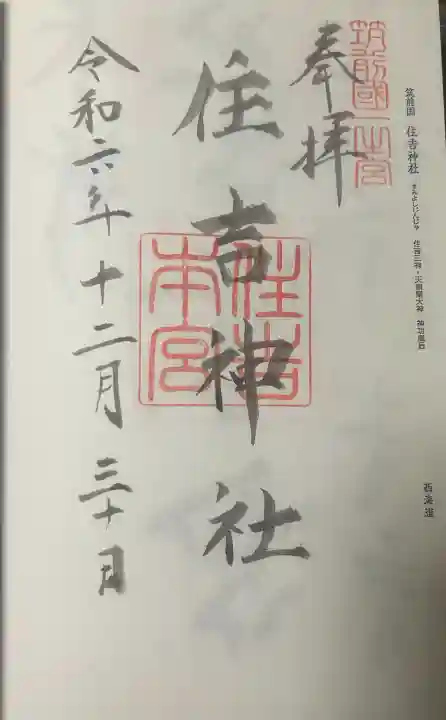 筑前国 住吉神社 すみよしじんじゃ 住吉三神・天照皇大神 神功皇后
西海道
筑前國一之宮
奉拝
住吉神社
住吉本宮
令和六年十二月三十日